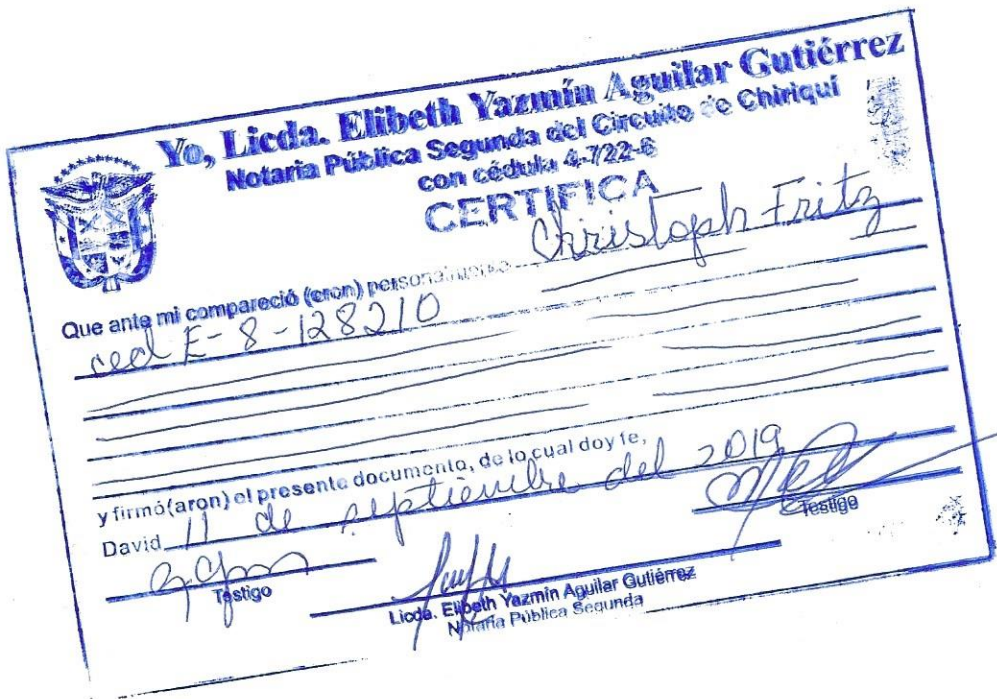 Yo, Licda. Elibeth Yazmín Aguilar Gutiérrez
Notaria Pública Segunda del Circuito de Chiriquí
con cédula 4-722-6
CERTIFICA
Que ante mi compareció (eron) personalmente Christoph Fritz
ced E-8-128210
y firmó(aron) el presente documento, de lo cual doy fe,
David 11 de septiembre del 2019
Testigo
Testigo
Licda. Elibeth Yazmín Aguilar Gutiérrez
Notaria Pública Segunda